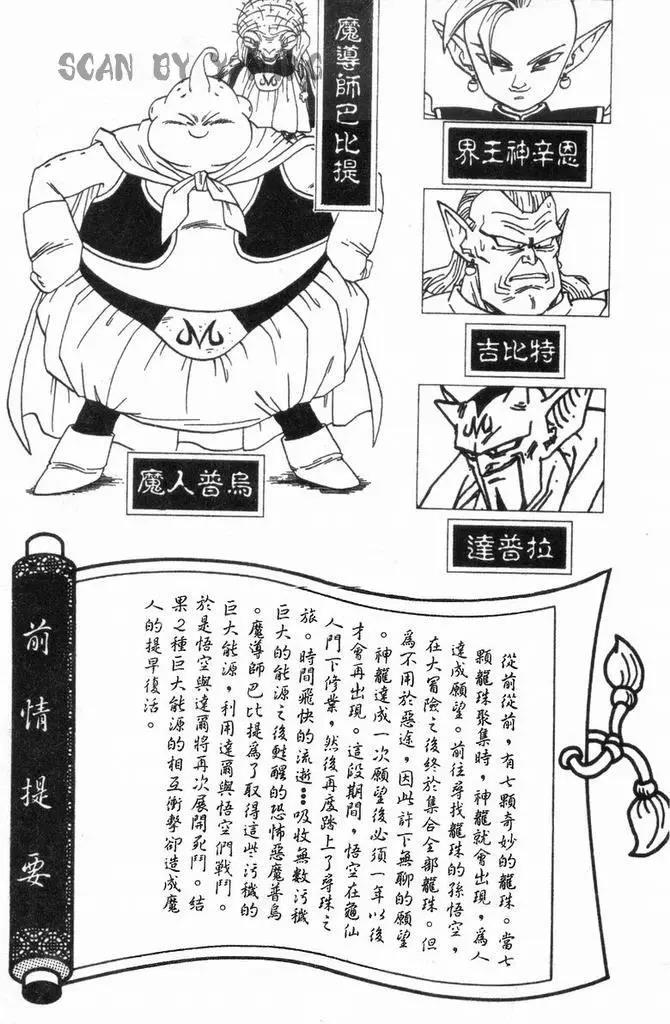 SCAN BY
魔導師巴比提
界王神辛恩
吉比特
達普拉
魔人普烏
前情提要
從前從前，有七顆奇妙的龍珠。當七
顆龍珠聚集時，神龍就會出現，為人
達成願望。前往尋找龍珠的孫悟空，
在大冒險之後終於集合全部龍珠。但
為不用於惡途，因此許下無聊的願望
。神龍達成一次願望後必須一年以後
才會再出現。這段期間，悟空在龜仙
人門下修業，然後再度踏上了尋珠之
旅。時間飛快的流逝…吸收無數污穢
巨大的能源之後甦醒的恐怖惡魔普烏
。魔導師巴比提為了取得這些污穢的
巨大能源，利用達爾與悟空們戰鬥。
於是悟空與達爾將再次展開死鬥。結
果之種巨大能源的相互衝擊卻造成魔
人的提早復活。